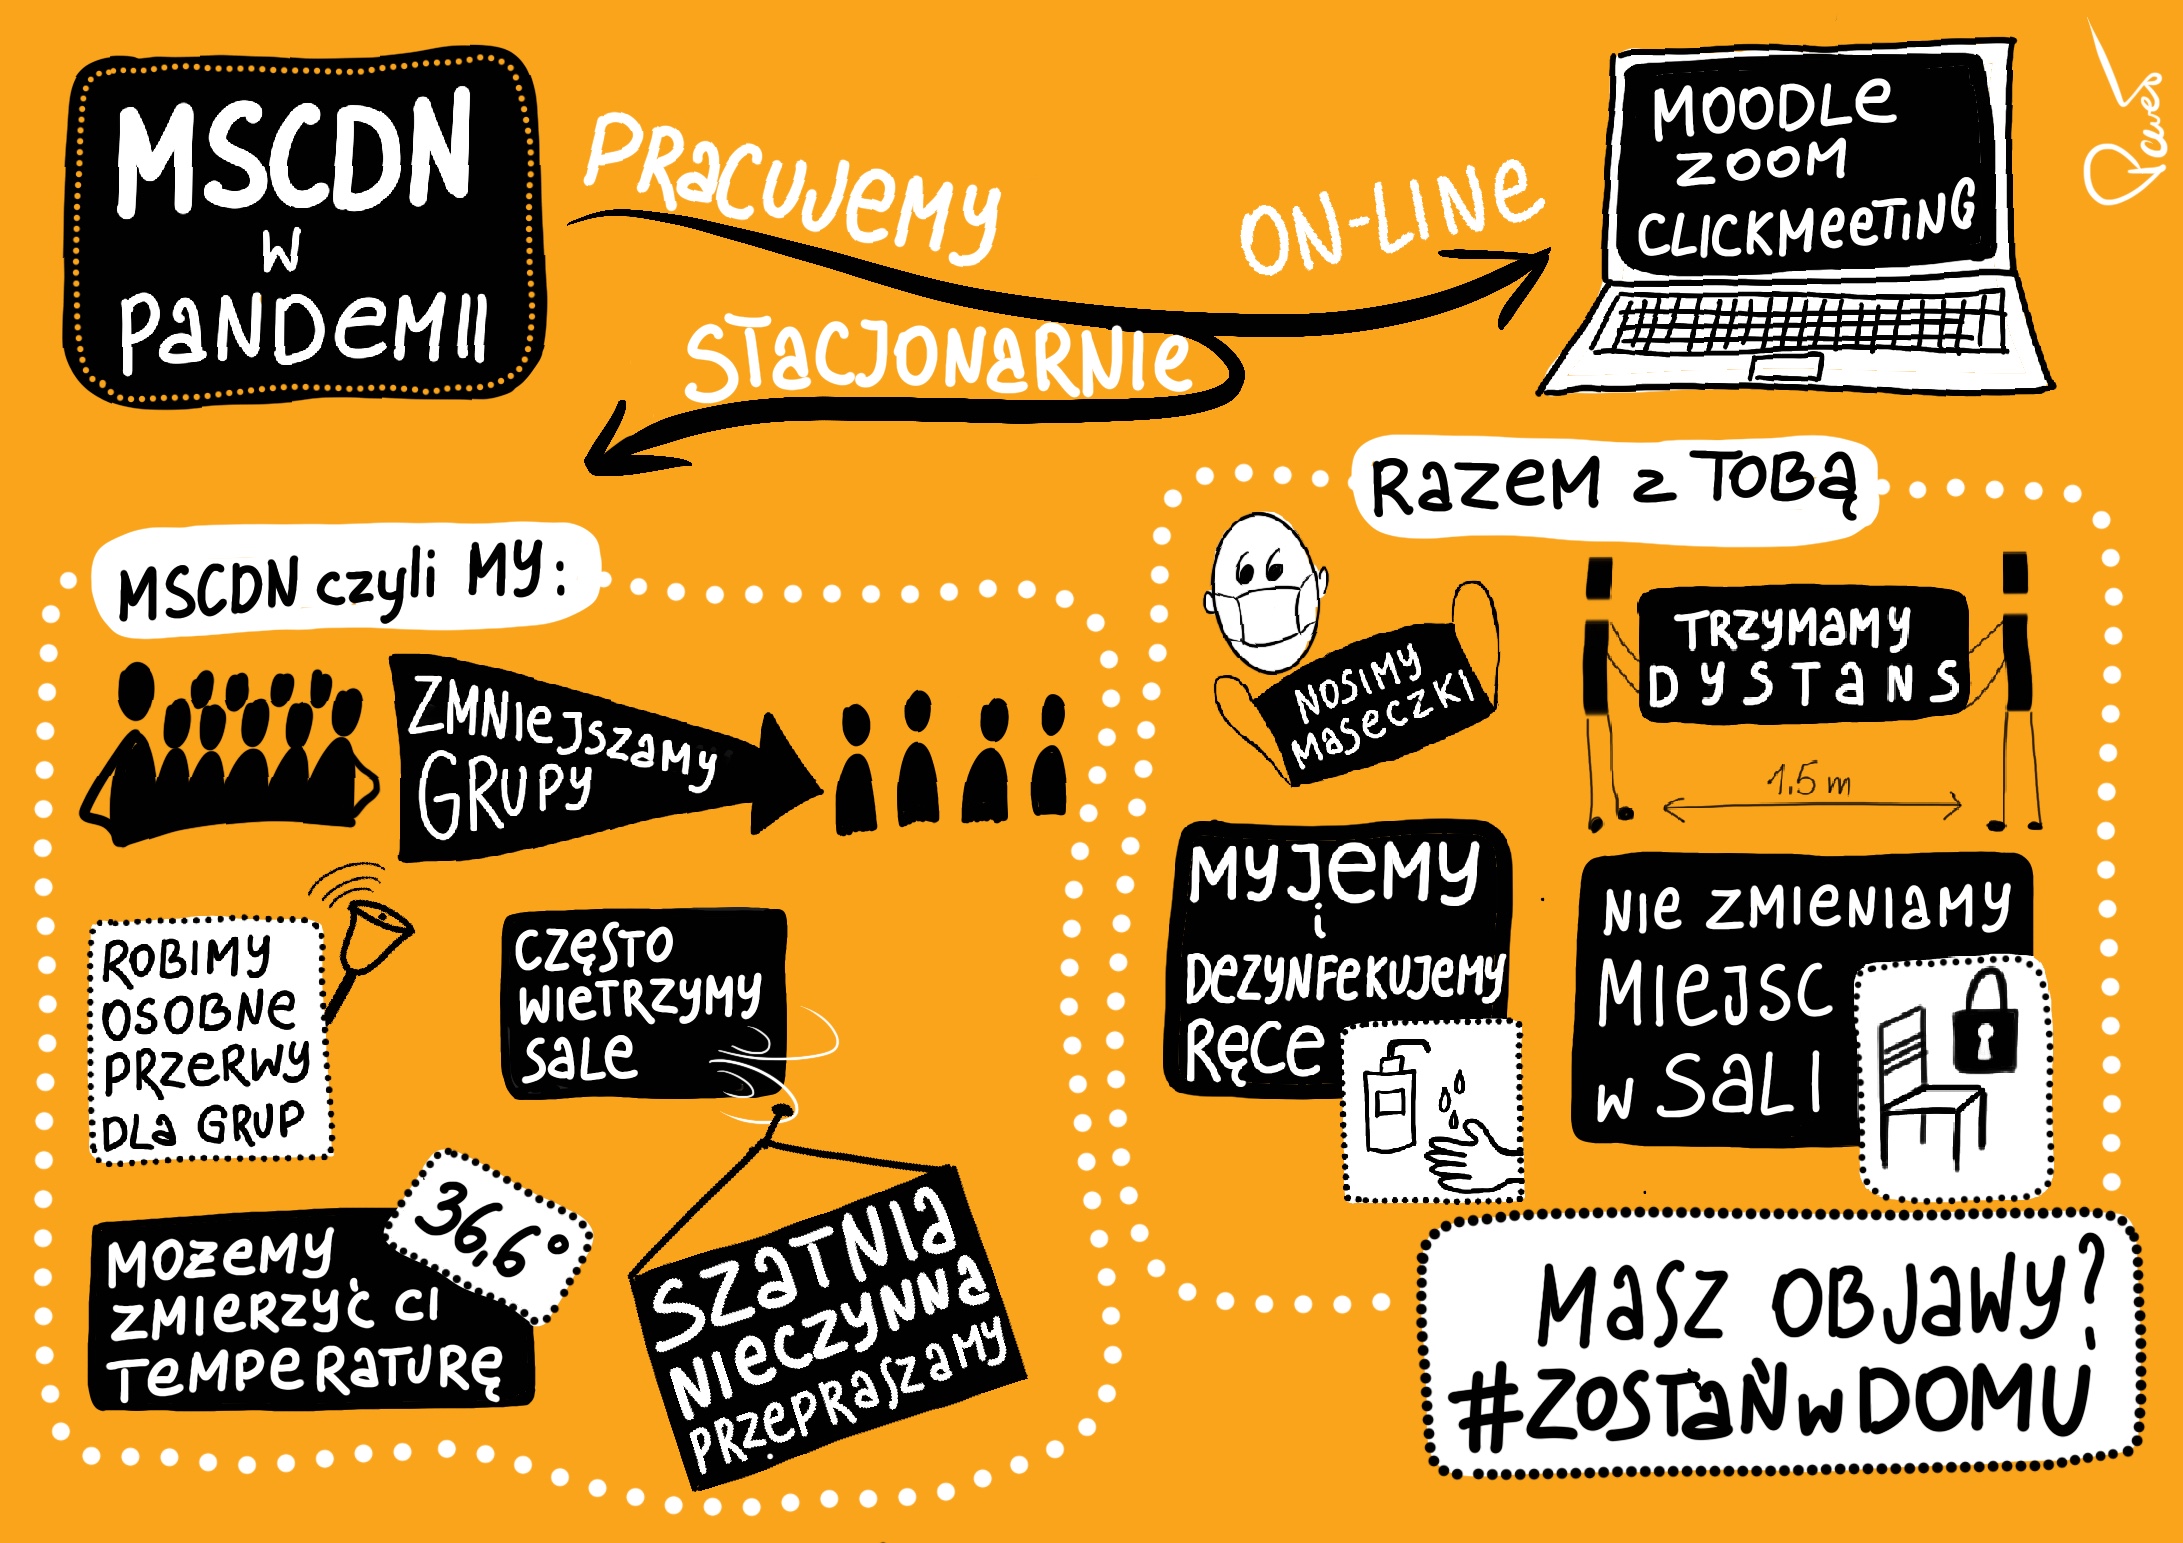 MSCDN
w
PANDEMII
PRACUJEMY
ON-LINE
STACJONARNIE
MOODLE
ZOOM
CLICKMEETING
MSCDN czyli MY:
ZMNIEJSZAMY
GRUPY
ROBIMY
OSOBNE
PRZERWY
DLA GRUP
CZĘSTO
WIETRZYMY
SALE
MOŻEMY
ZMIERZYĆ CI
TEMPERATURĘ
36,6°
SZATNIA
NIECZYNNA
PRZEPRASZAMY
RAZEM z TOBĄ
NOSIMY
MASECZKI
TRZYMAMY
DYSTANS
1.5 m
MYJEMY
i
DEZYNFEKUJEMY
RĘCE
NIE ZMIENIAMY
MIEJSC
w SALI
MASZ OBJAWY?
#ZOSTAŃwDOMU